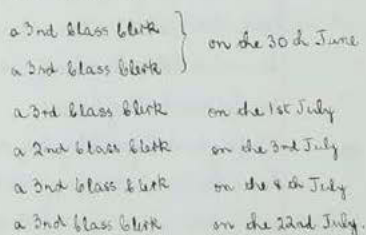 a 3rd Class Clerk } on the 30th June
a 3rd Class Clerk
a 3rd Class Clerk on the 1st July
a 2nd Class Clerk on the 3rd July
a 3rd Class Clerk on the th July
a 3rd Class Clerk on the 22nd July.